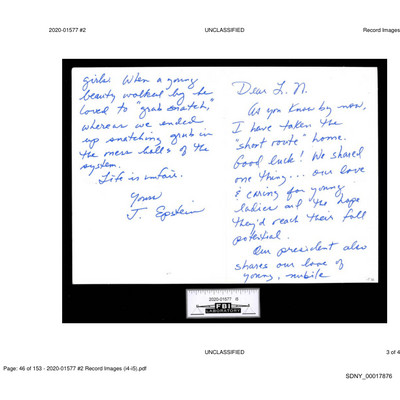 2020-01577 #2
UNCLASSIFIED
Record Images
girls. When a young
beauty walked by he
loved to "grab snatch,"
whereas we ended
up snatching grub in
the mess halls of the
system.
Life is unfair.
Yours
J. Epstein
Dear L. N.
As you know by now,
I have taken the
"short route" home.
Good luck! We shared
one thing... our love
& caring for young
ladies and the hope
they'd reach their full
potential.
Our president also
shares our love of
young, nubile
2020-01577
FBI
LABORATORY
UNCLASSIFIED
3 of 4
Page: 46 of 153 - 2020-01577 #2 Record Images (i4-i5).pdf
SDNY_00017876